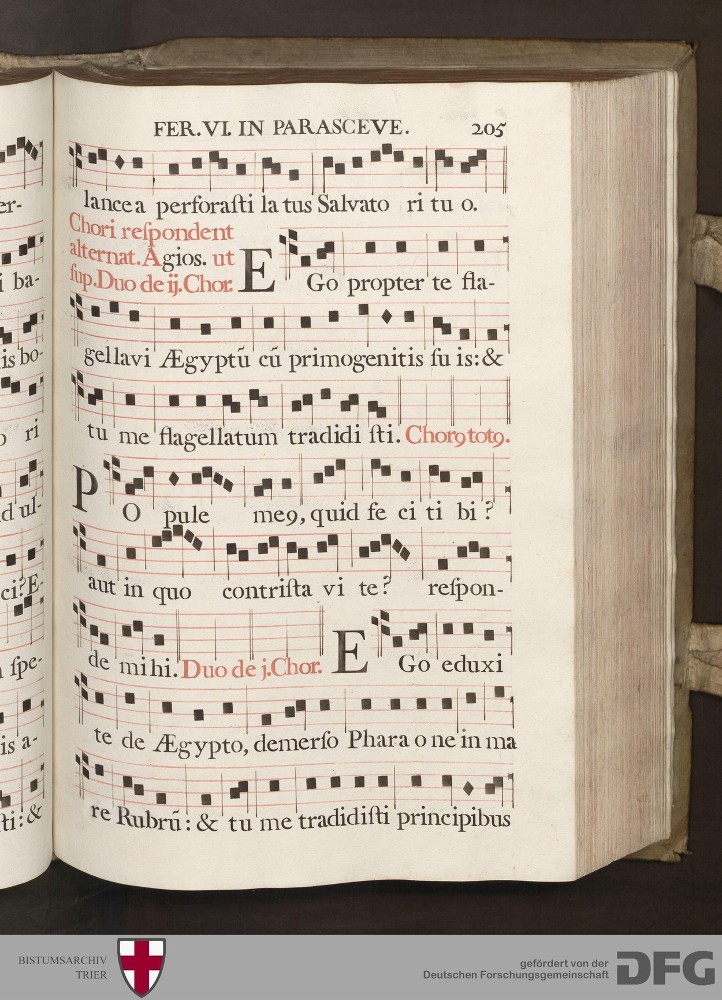 FER. VI. IN PARASCEVE. 205
lancea perforaſti la tus Salvato ri tu o.
Chori reſpondent
alternat. Agios. ut
ſup. Duo de ij. Chor. E Go propter te fla-
gel lavi Ægyptū cū primogenitis ſu is: &
tu me flagellatum tradidi ſti. Chorꝯ totꝯ.
P O pule meꝯ, quid fe ci ti bi ?
aut in quo contriſta vi te? reſpon-
de mi hi. Duo de j. Chor. E Go eduxi
te de Ægypto, demerſo Phara o ne in ma
re Rubrū: & tu me tradidiſti principibus
er-
i ba-
is bo-
ri
d ul-
ci? E-
ſpe-
is a-
ti: &
BISTUMSARCHIV
TRIER
gefördert von der
Deutschen Forschungsgemeinschaft
DFG